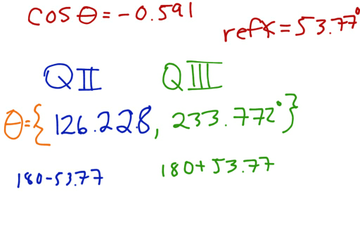 cos θ = -0.591
ref∡ = 53.77°
QII QIII
θ = {126.228, 233.772°}
180-53.77 180+53.77